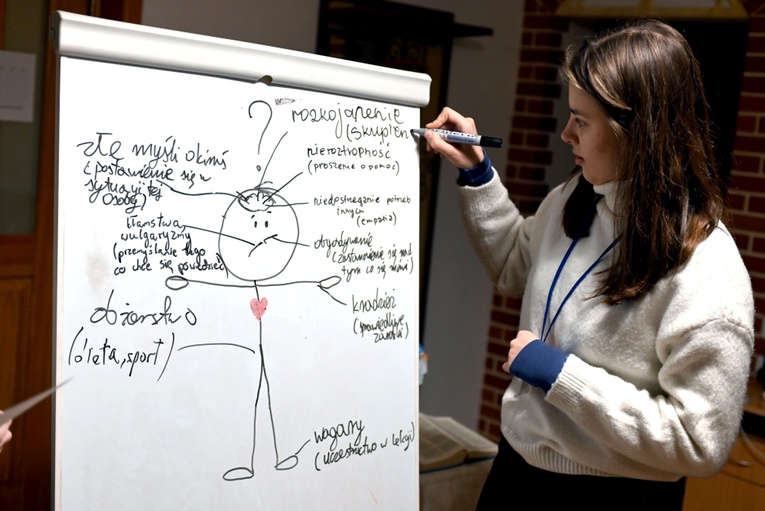 ?
rozkojarzenie
(skupien
złe myśli o kimś
(postawienie się w
sytuacji tej
osoby)
nieroztropność
(proszenie o pomoc)
niedostrzeganie potrzeb
innych
(empatia)
kłamstwa,
wulgaryzmy
(przemyślenie tego
co chce się powiedzieć)
obgadywanie
(zastanowienie się nad
tym co się mówi)
kradzież
(sprawiedliwe
obżarstwo
(dieta, sport)
wagary
(uczestnictwo w lekcji)